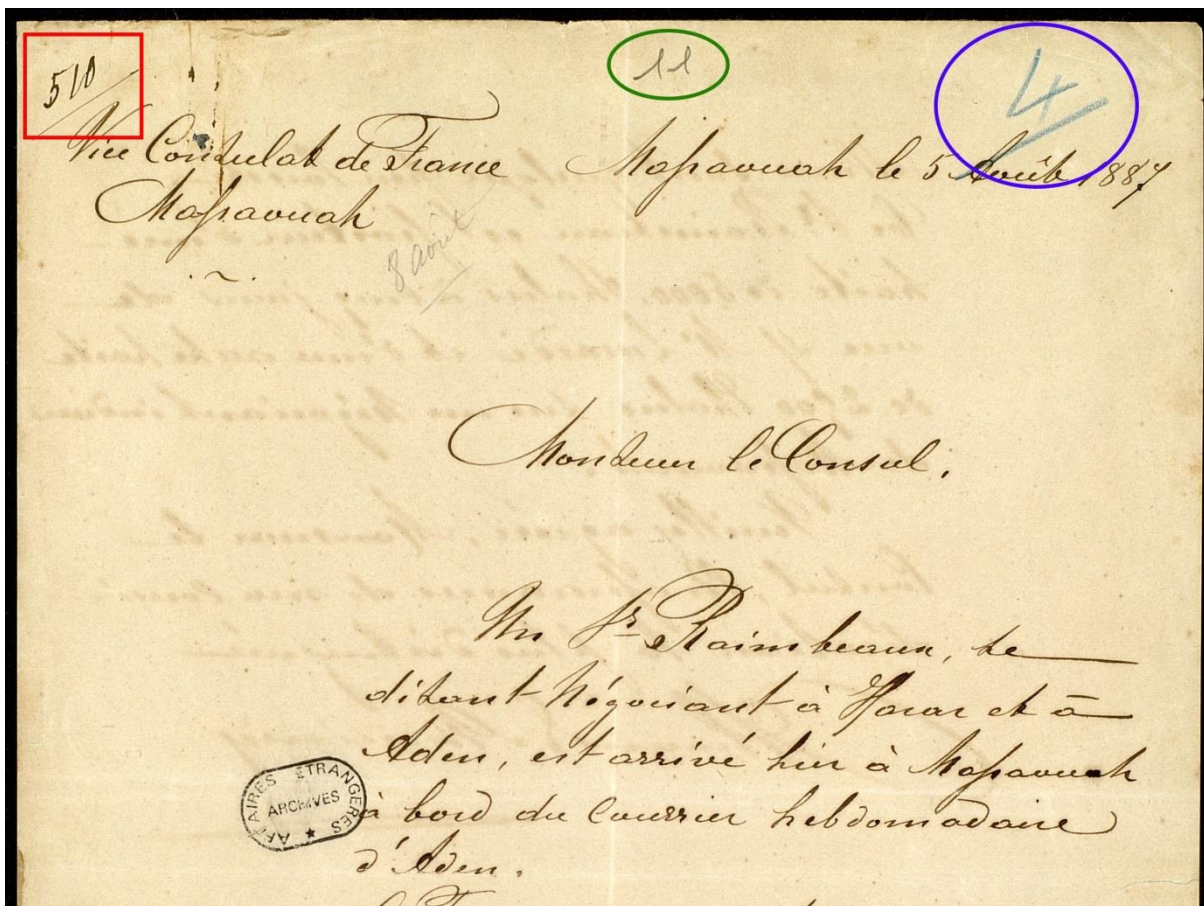 510
11
4
Vice Consulat de France
Massaouah
Massaouah le 5 Août 1887
8 août
Monsieur le Consul,
Un Sr Raimbeaux, se
disant Négociant à Harar et à
Aden, est arrivé hier à Massaouah
à bord du Courrier hebdomadaire
d'Aden.
AFFAIRES ETRANGERES
ARCHIVES